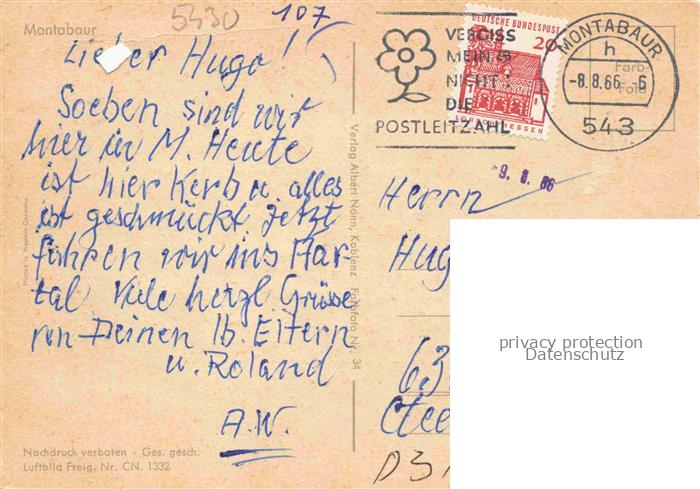 5430
107
Montabaur
Lieber Hugo!
Soeben sind wir
hier in M. Heute
ist hier Kerb u. alles
ist geschmückt. Jetzt
fahren wir ins Aar-
tal Viele herzl. Grüsse
von Deinen lb. Eltern
u. Roland
A.W.
Nachdruck verboten - Ges. gesch.
Luftbild Freig. Nr. CN. 1332
Printed in Western Germany
Verlag Albert Nonn, Koblenz Farbfoto Nr. 34
VERGISS
MEIN
NICHT
DIE
POSTLEITZAHL
DEUTSCHE BUNDESPOST
20
LORSCH/HESSEN
MONTABAUR
h
-8.8.66.-6
543
Farb-
Foto
-9. 8. 66
Herrn
Hug
63
privacy protection
Datenschutz